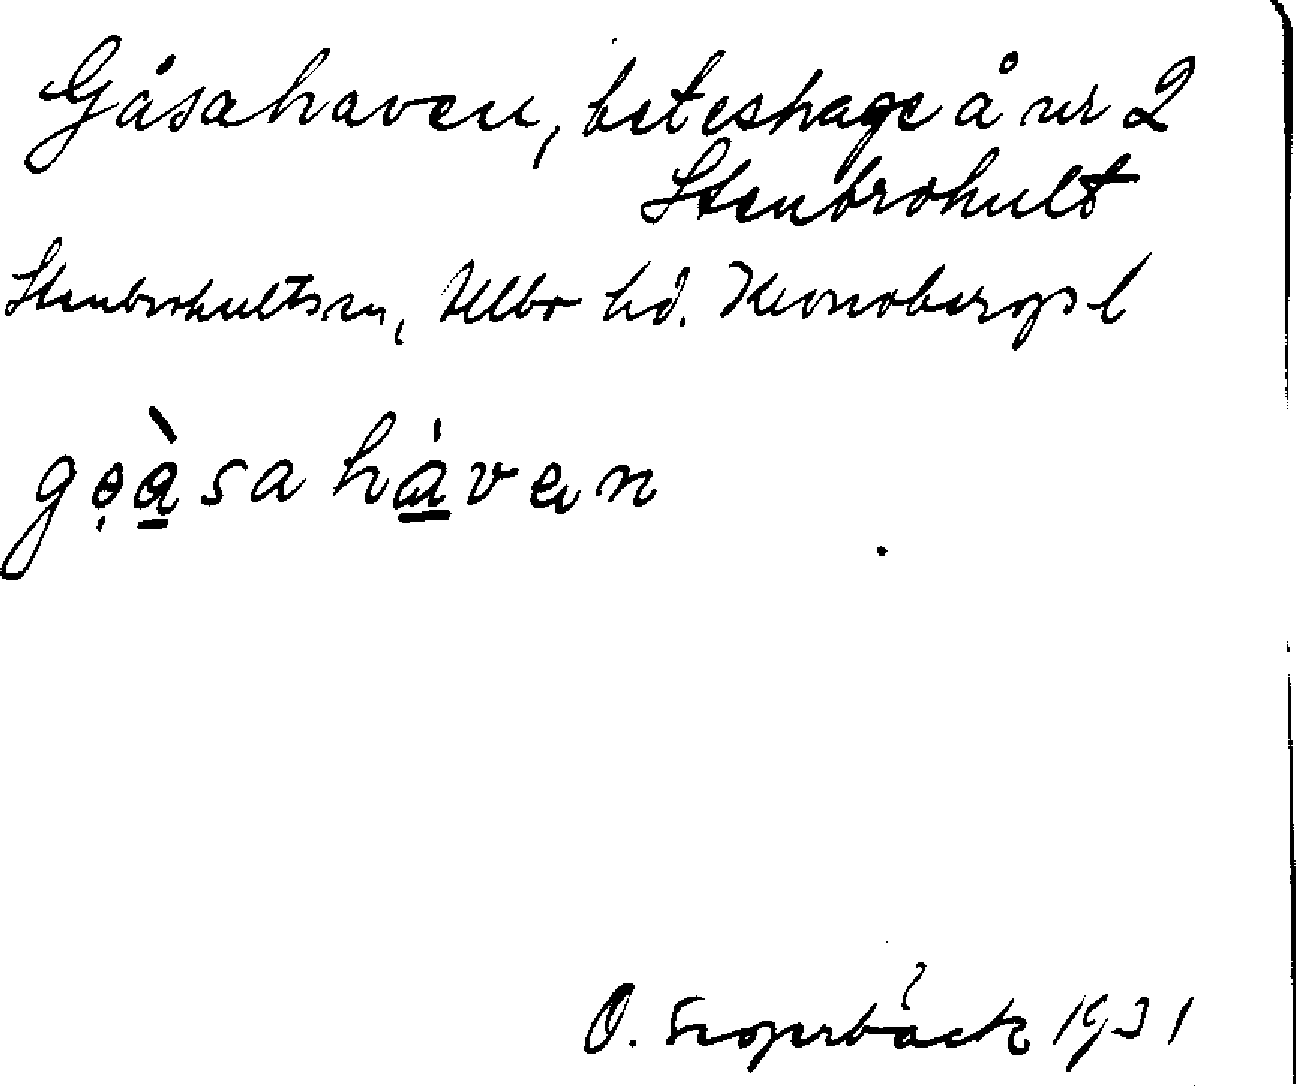 Gåsahaven, beteshage å nr 2
Stenbrohult
Stenbrohultssn, Allbo hd. Kronobergs l
gọàsa hàven
O. 1931